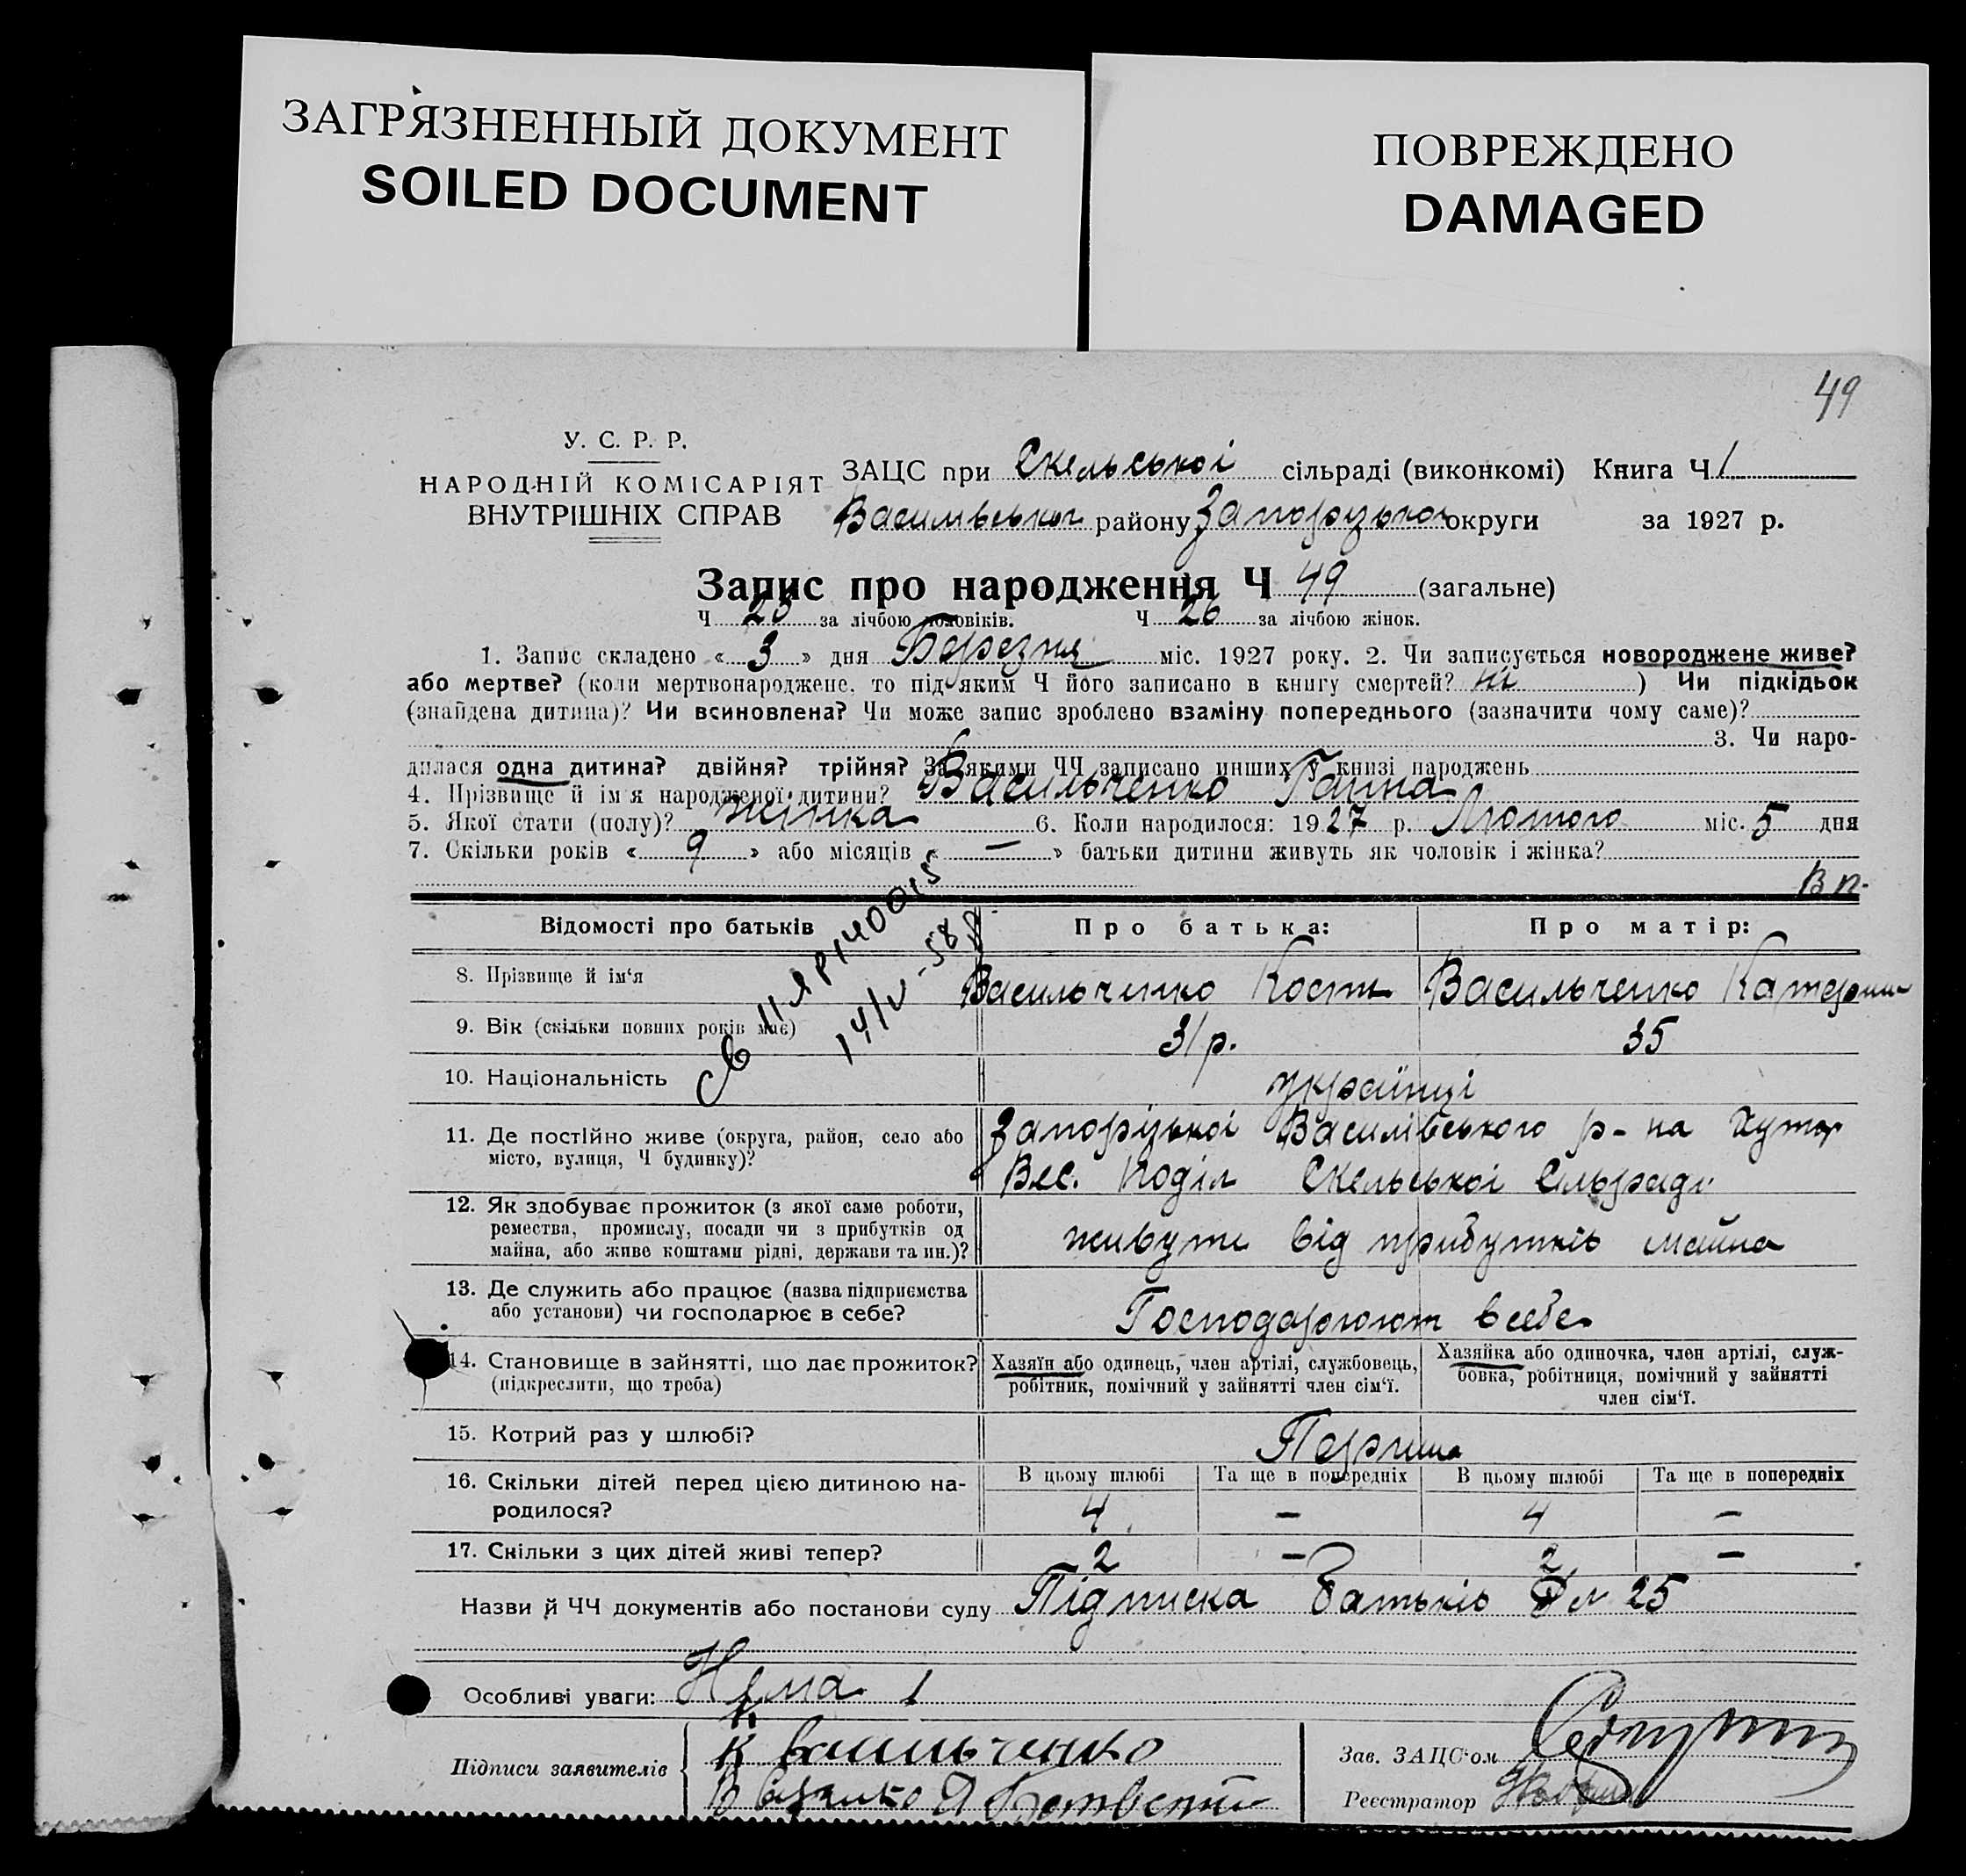 ЗАГРЯЗНЕННЫЙ ДОКУМЕНТ
SOILED DOCUMENT
ПОВРЕЖДЕНО
DAMAGED
49
У. С. Р. Р.
НАРОДНІЙ КОМІСАРІЯТ
ВНУТРІШНІХ СПРАВ
ЗАЦС при Скельської сільраді (виконкомі) Книга Ч 1
району Запорізької округи за 1927 р.
Запис про народження Ч 49 (загальне)
Ч 23 за лічбою чоловіків. Ч 26 за лічбою жінок.
1. Запис складено « 3 » дня Березня міс. 1927 року. 2. Чи записується новороджене живе?
або мертве? (коли мертвонароджене, то під яким Ч його записано в книгу смертей? ні ) Чи підкідьок
(знайдена дитина)? Чи всиновлена? Чи може запис зроблено взаміну попереднього (зазначити чому саме)?
3. Чи наро-
дилася одна дитина? двійня? трійня? За якими ЧЧ записано инших у книзі народжень
4. Прізвище й ім'я народженої дитини? Васильченко Ганна
5. Якої стати (полу)? жінка 6. Коли народилося: 1927 р. Лютого міс. 5 дня
7. Скільки років « 9 » або місяців « — » батьки дитини живуть як чоловік і жінка?
В п.
Відомості про батьків Про батька: Про матір:
8. Прізвище й ім'я Васильченко Кость Васильченко Катерина
9. Вік (скільки повних років має) 31 р. 35
14/V-58
10. Національність українці
11. Де постійно живе (округа, район, село або місто, вулиця, Ч будинку)?
Запорізької Василівського р-на Хутор
Вес. Поділ Скельської Сільради
12. Як здобуває прожиток (з якої саме роботи,
ремества, промислу, посади чи з прибутків од
майна, або живе коштами рідні, держави та ин.)?
живуть від прибутків майна
13. Де служить або працює (назва підприємства
або установи) чи господарює в себе?
Господарюют в себе
14. Становище в зайнятті, що дає прожиток?
(підкреслити, що треба)
Хазяїн або одинець, член артілі, службовець,
робітник, помічний у зайнятті член сім'ї.
Хазяйка або одиночка, член артілі, служ-
бовка, робітниця, помічний у зайнятті
член сім'ї.
15. Котрий раз у шлюбі?
16. Скільки дітей перед цією дитиною на-
родилося?
В цьому шлюбі Та ще в попередніх В цьому шлюбі Та ще в попередніх
4 — 4 —
17. Скільки з цих дітей живі тепер? 2 — 2 —
Назви й ЧЧ документів або постанови суду Підписка Батьків 25
Особливі уваги: Нема
Підписи заявителів К Васильченко
Зав. ЗАЦС'ом
Реєстратор